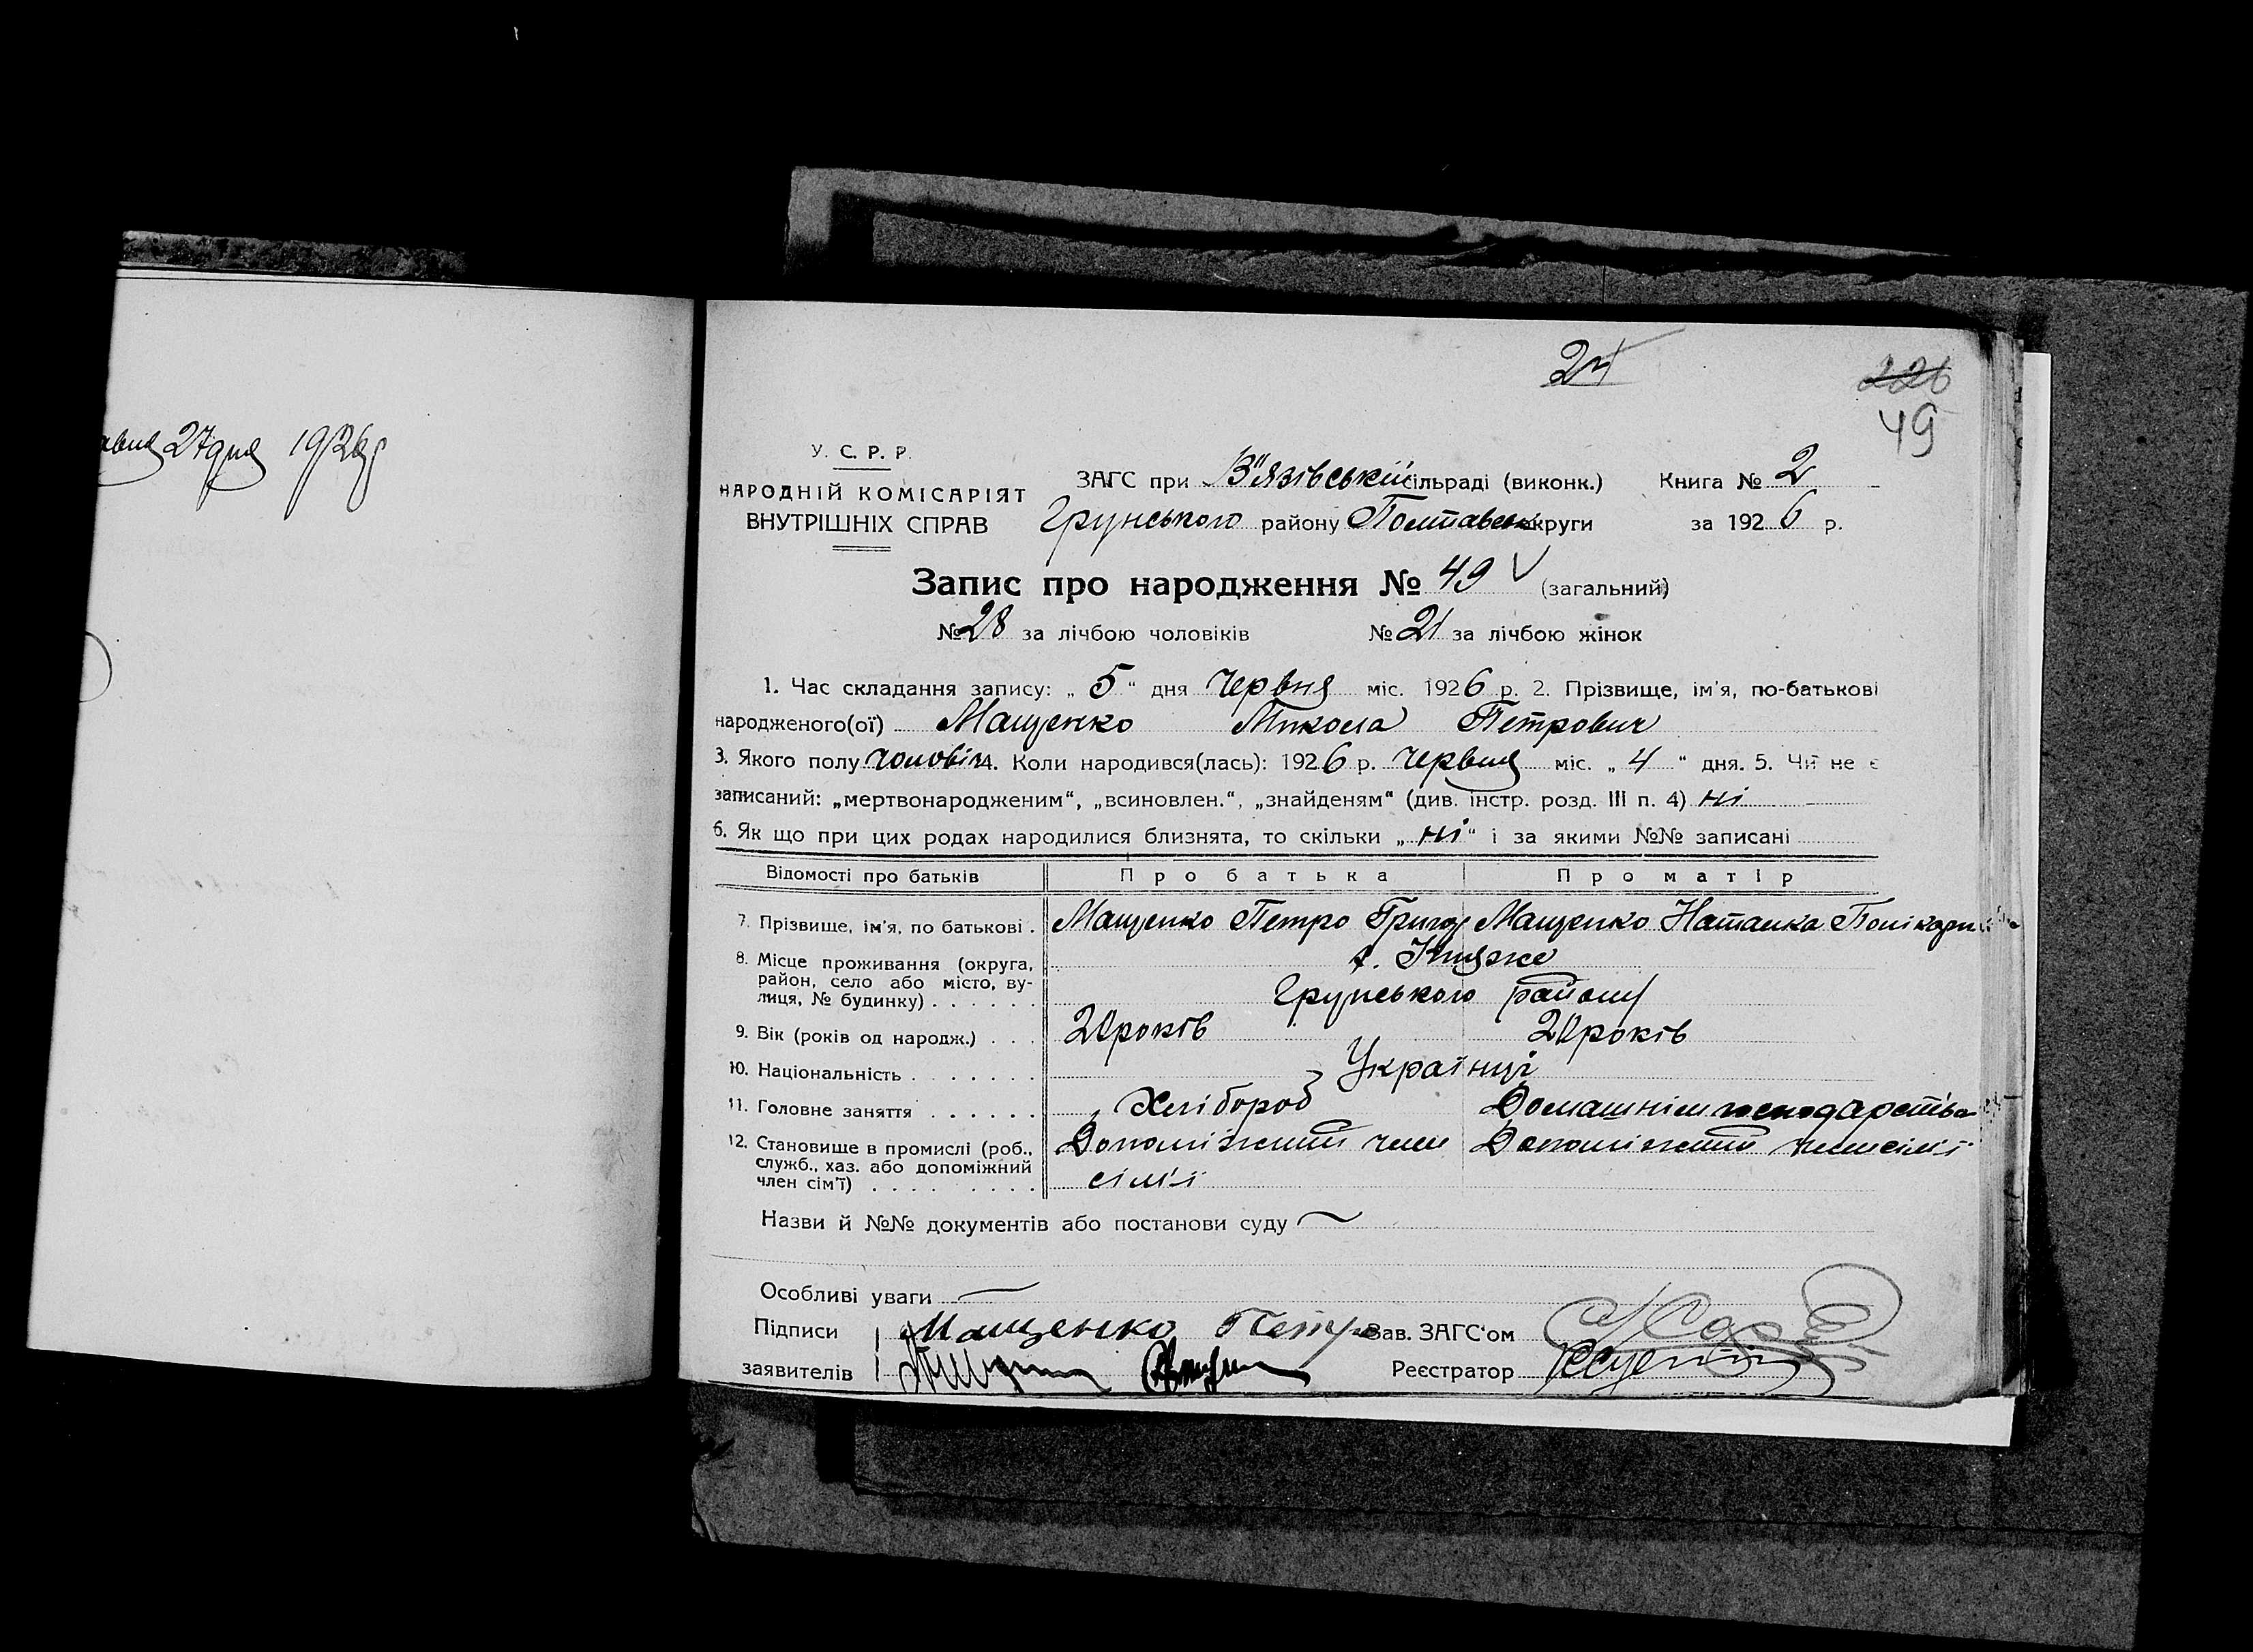 27 дня 1926 р
24
226
49
У. С. Р. Р.
НАРОДНІЙ КОМІСАРІЯТ
ВНУТРІШНІХ СПРАВ
ЗАГС при В"язівській сільраді (виконк.) Книга № 2
Грунського району Полтавськ округи за 1926 р.
Запис про народження № 49 (загальний)
№ 28 за лічбою чоловіків № 21 за лічбою жінок
1. Час складання запису: „ 5 “ дня Червня міс. 1926 р. 2. Прізвище, ім'я, по-батькові
народженого(ої) Мащенко Микола Петрович
3. Якого полу чоловіч 4. Коли народився(лась): 1926 р. Червня міс. „ 4 “ дня. 5. Чи не є
записаний: „мертвонародженим“, „всиновлен.“, „знайденям“ (див. інстр. розд. III п. 4) Ні
6. Як що при цих родах народилися близнята, то скільки „ Ні “ і за якими №№ записані
Відомості про батьків Про батька Про матір
7. Прізвище, ім'я, по батькові . Мащенко Петро Григор Мащенко Наталка Полікарп
8. Місце проживання (округа, х. Княже
район, село або місто, ву-
лиця, № будинку) . . . . . . Грунського району
9. Вік (років од народж.) . . . 20 років 20 років
10. Національність . . . . . . . Українці
11. Головне заняття . . . . . . Хлібороб Домашнім господарства
12. Становище в промислі (роб., Допоміжний член Допоміжний член сім'ї
служб., хаз. або допоміжний
член сім'ї) . . . . . . . . . сім'ї
Назви й №№ документів або постанови суду
Особливі уваги
Підписи Мащенко Петро Зав. ЗАГС'ом
заявителів Реєстратор